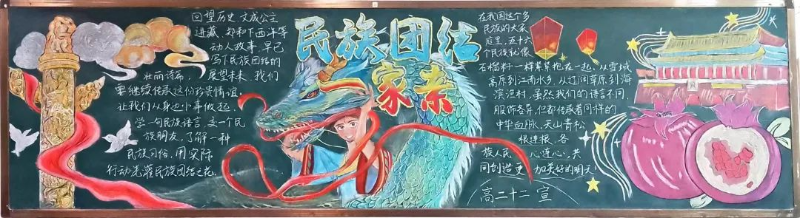 回望历史 文成公主
进藏、郑和下西洋等
动人故事 早已
写下民族团结的
壮丽诗篇, 展望未来 我们
要继续传承这份珍贵情谊,
让我们从身边小事做起,
学一句民族语言, 交一个民
族朋友, 了解一种
民族习俗, 用实际
行动浇灌民族团结之花。
民族团结
一家亲
在我国这个多
民族的大家
庭里, 五十六
个民族就像
石榴籽一样紧紧抱在一起。从雪域
高原到江南水乡, 从辽阔草原到海
滨渔村, 虽然我们的语言不同
服饰各异, 但都传承着同样的
中华血脉。天山青松
根连根 各
族人民 心连心, 共
同创造更加美好的明天!
高二十二 宣